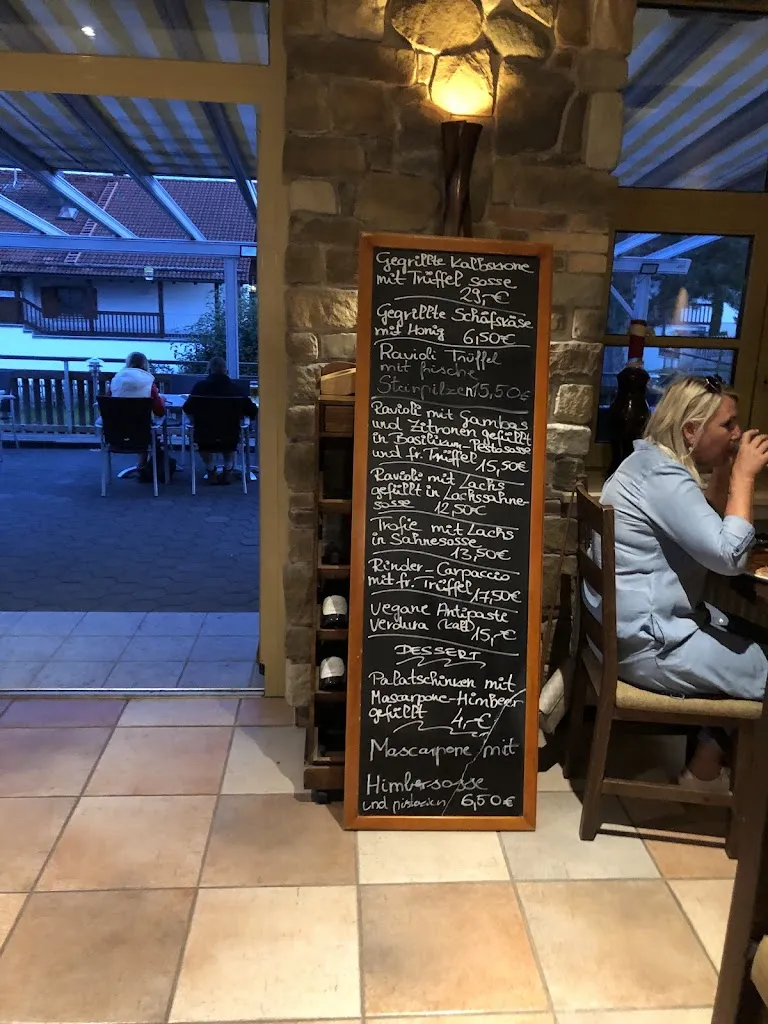 Gegrillte Kalbskrone
mit Trüffel sosse
29,-€
Gegrillte Schafskäse
mit Honig 6,50€
Ravioli Trüffel
mit frische
Steinpilzen 15,50€
Ravioli mit Gambas
und Zitronen gefüllt
in Basilikum-Pestosasse
und fr. Trüffel 15,50€
Ravioli mit Lachs
gefüllt in Lachssahne-
sosse 12,50€
Trofie mit Lachs
in Sahnesasse
13,50€
Rinder-Carpaccio
mit fr. Trüffel 17,50€
vegane Antipaste
Verdura (kalt) 15,-€
DESSERT
Palatschinken mit
Mascarpone-Himbeer
gefüllt 4,-€
Mascarpone mit
Himbersosse
und pistazien 6,50€